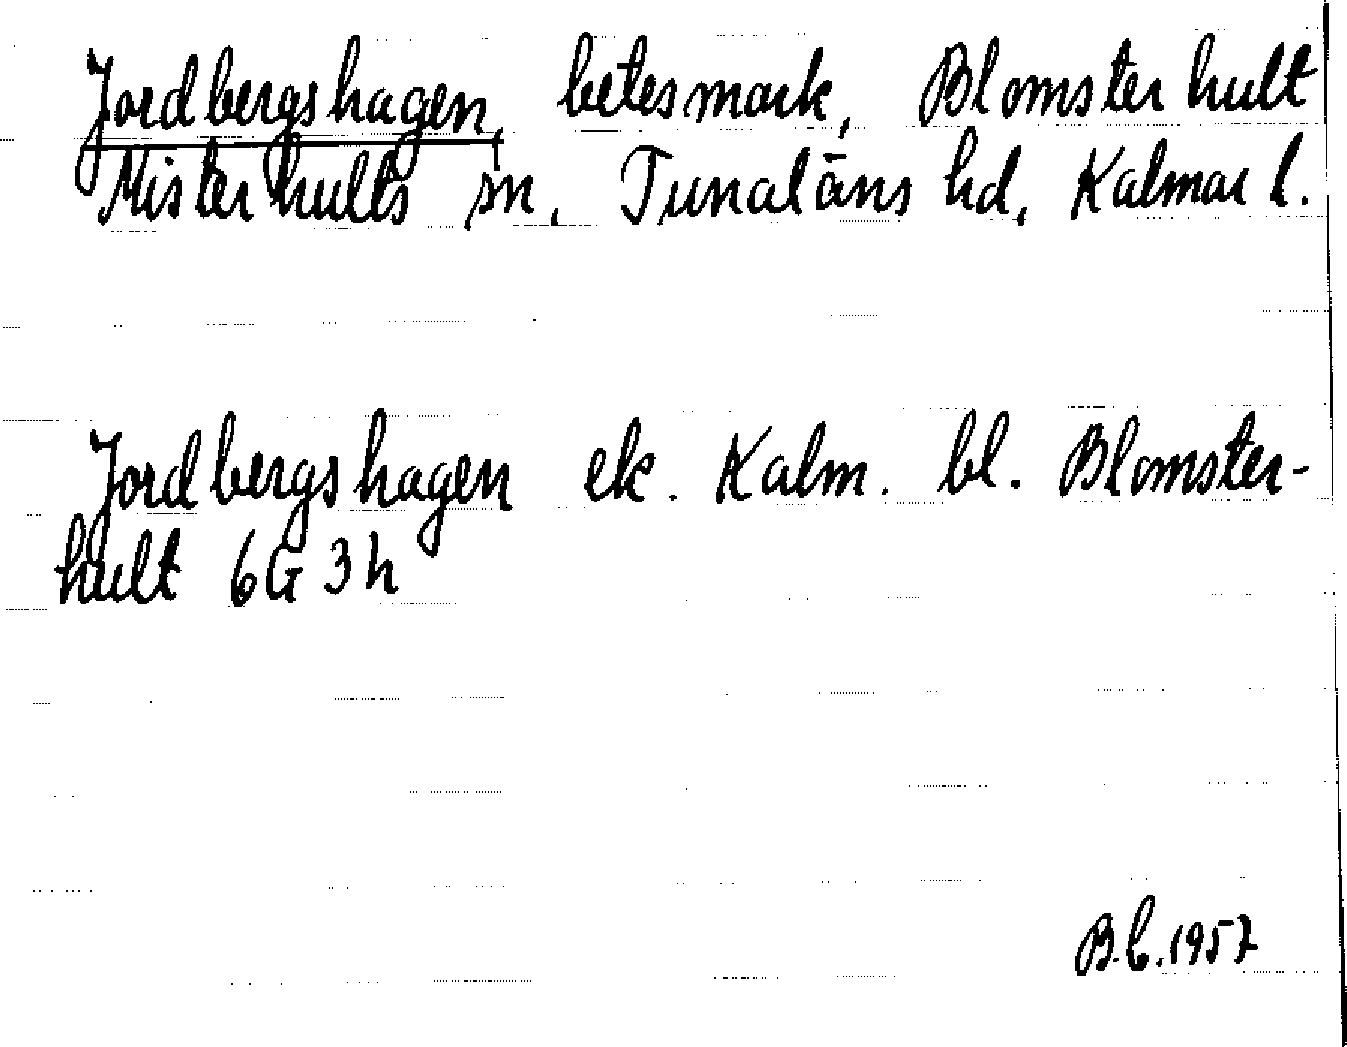 Jordbergshagen, betesmark, Blomsterhult
Misterhults sn, Tunaläns hd, Kalmar l.
Jordbergshagen ek. Kalm. bl. Blomster-
hult 6G3h
B.C.1957